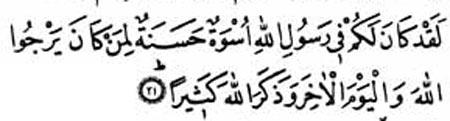 لَقَدْ كَانَ لَكُمْ فِي رَسُولِ اللهِ أُسْوَةٌ حَسَنَةٌ لِمَنْ كَانَ يَرْجُوا
اللهَ وَالْيَوْمَ الْاٰخِرَ وَذَكَرَ اللهَ كَثِيرًا ۝٢١ ط